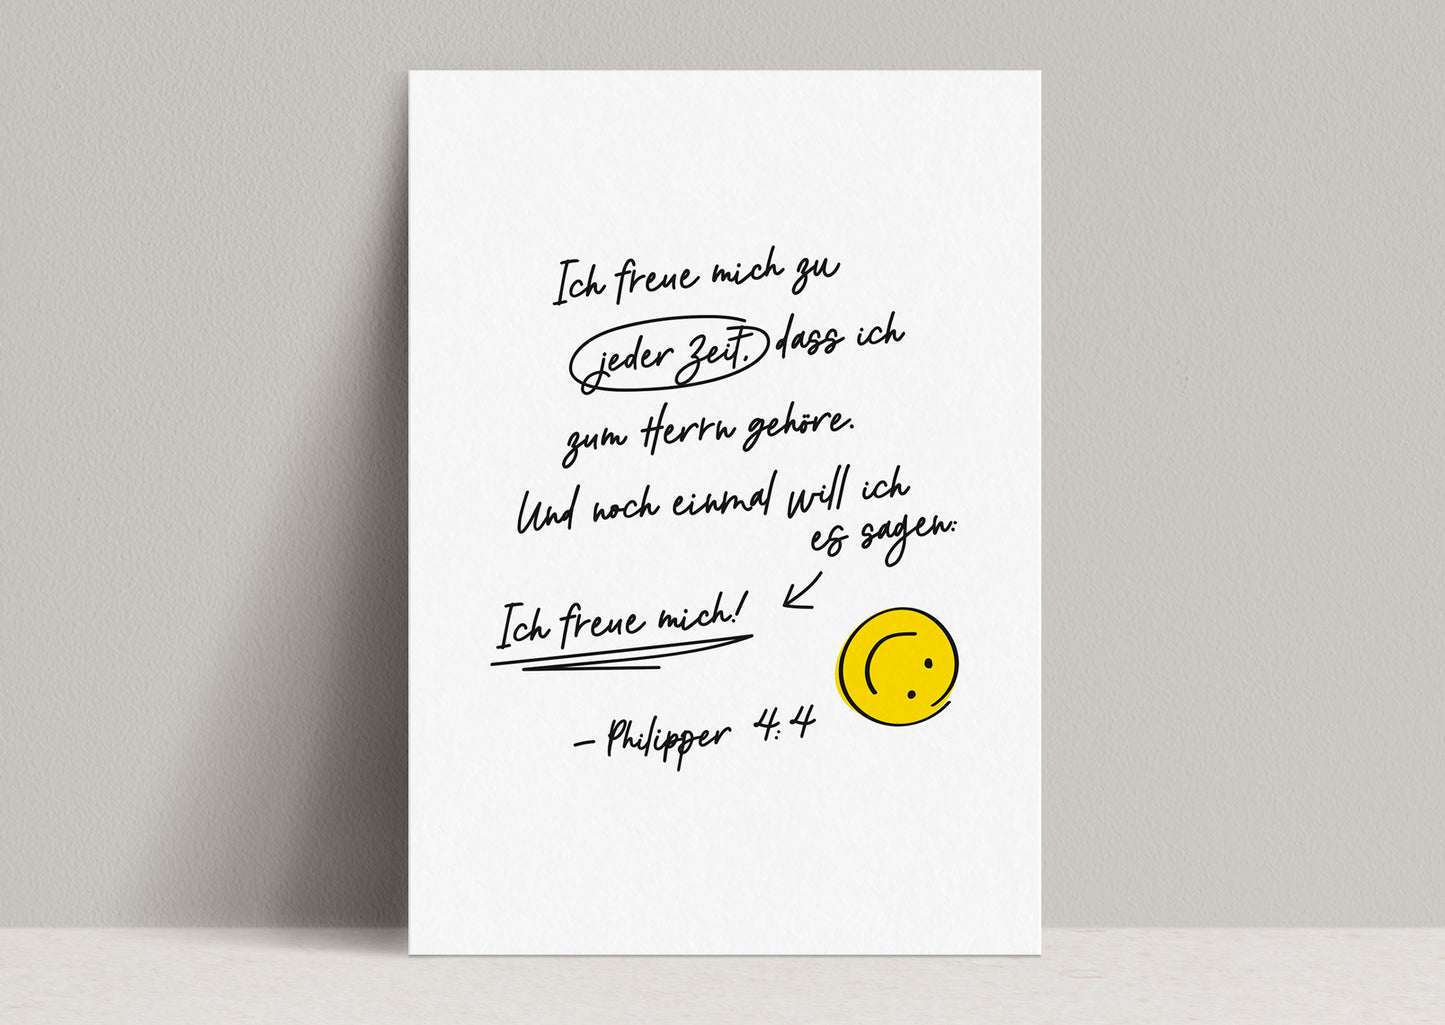 Ich freue mich zu
jeder Zeit, dass ich
zum Herrn gehöre.
Und noch einmal will ich
es sagen:
Ich freue mich!
– Philipper 4:4